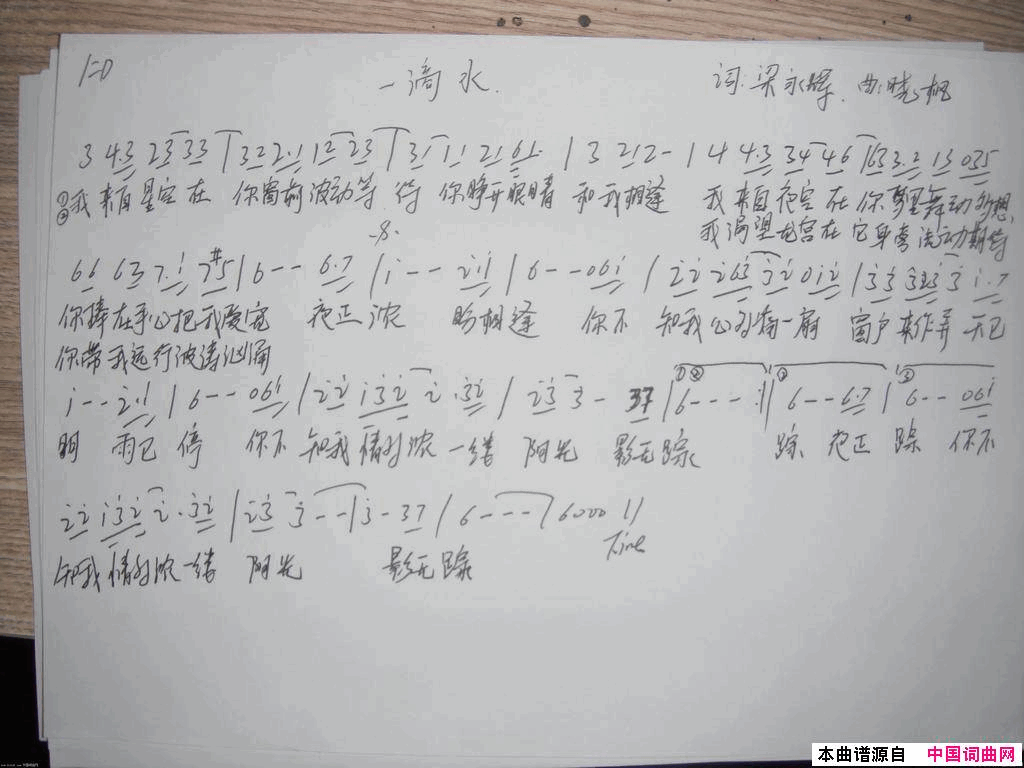 1=D 一滴水 词:梁永辉 曲:晓枫
3 4·3 23 33 | 32 2·1 12 23 | 31 11 21 61· | 3 212- | 4 4·3 34 46 | 63 3·2 13 035
①② 我来自星空在 你窗前波动等待 你睁开眼睛 和我相逢 我来自夜空在你梦里舞动的想
我渴望 在它身旁 动期待
·S·
66 63 7·i 7#5 | 6-- 6·7 | i-- 2·1 | 6--06i | 22 263 32 012 | 33 323 3 i·7
你捧在手心把我爱宠 夜正浓 盼相逢 你不知我心外有一扇 窗户来作弄 天已
你带我远行波涛汹涌
i--2·1 | 6--06i | 22 i32 2·32 | 23 3- 37 | ①② 6---:| ② 6--6·7 | ③ 6--06i
明 雨已停 你不知我情好浓一缕 阳光 影无踪 踪 夜正 踪 你不
22 i32 2·32 | 23 3-- | 3-37 | 6--- | 6000 ||
知我情好浓一缕 阳光 影无踪
Fine
本曲谱源自 中国词曲网